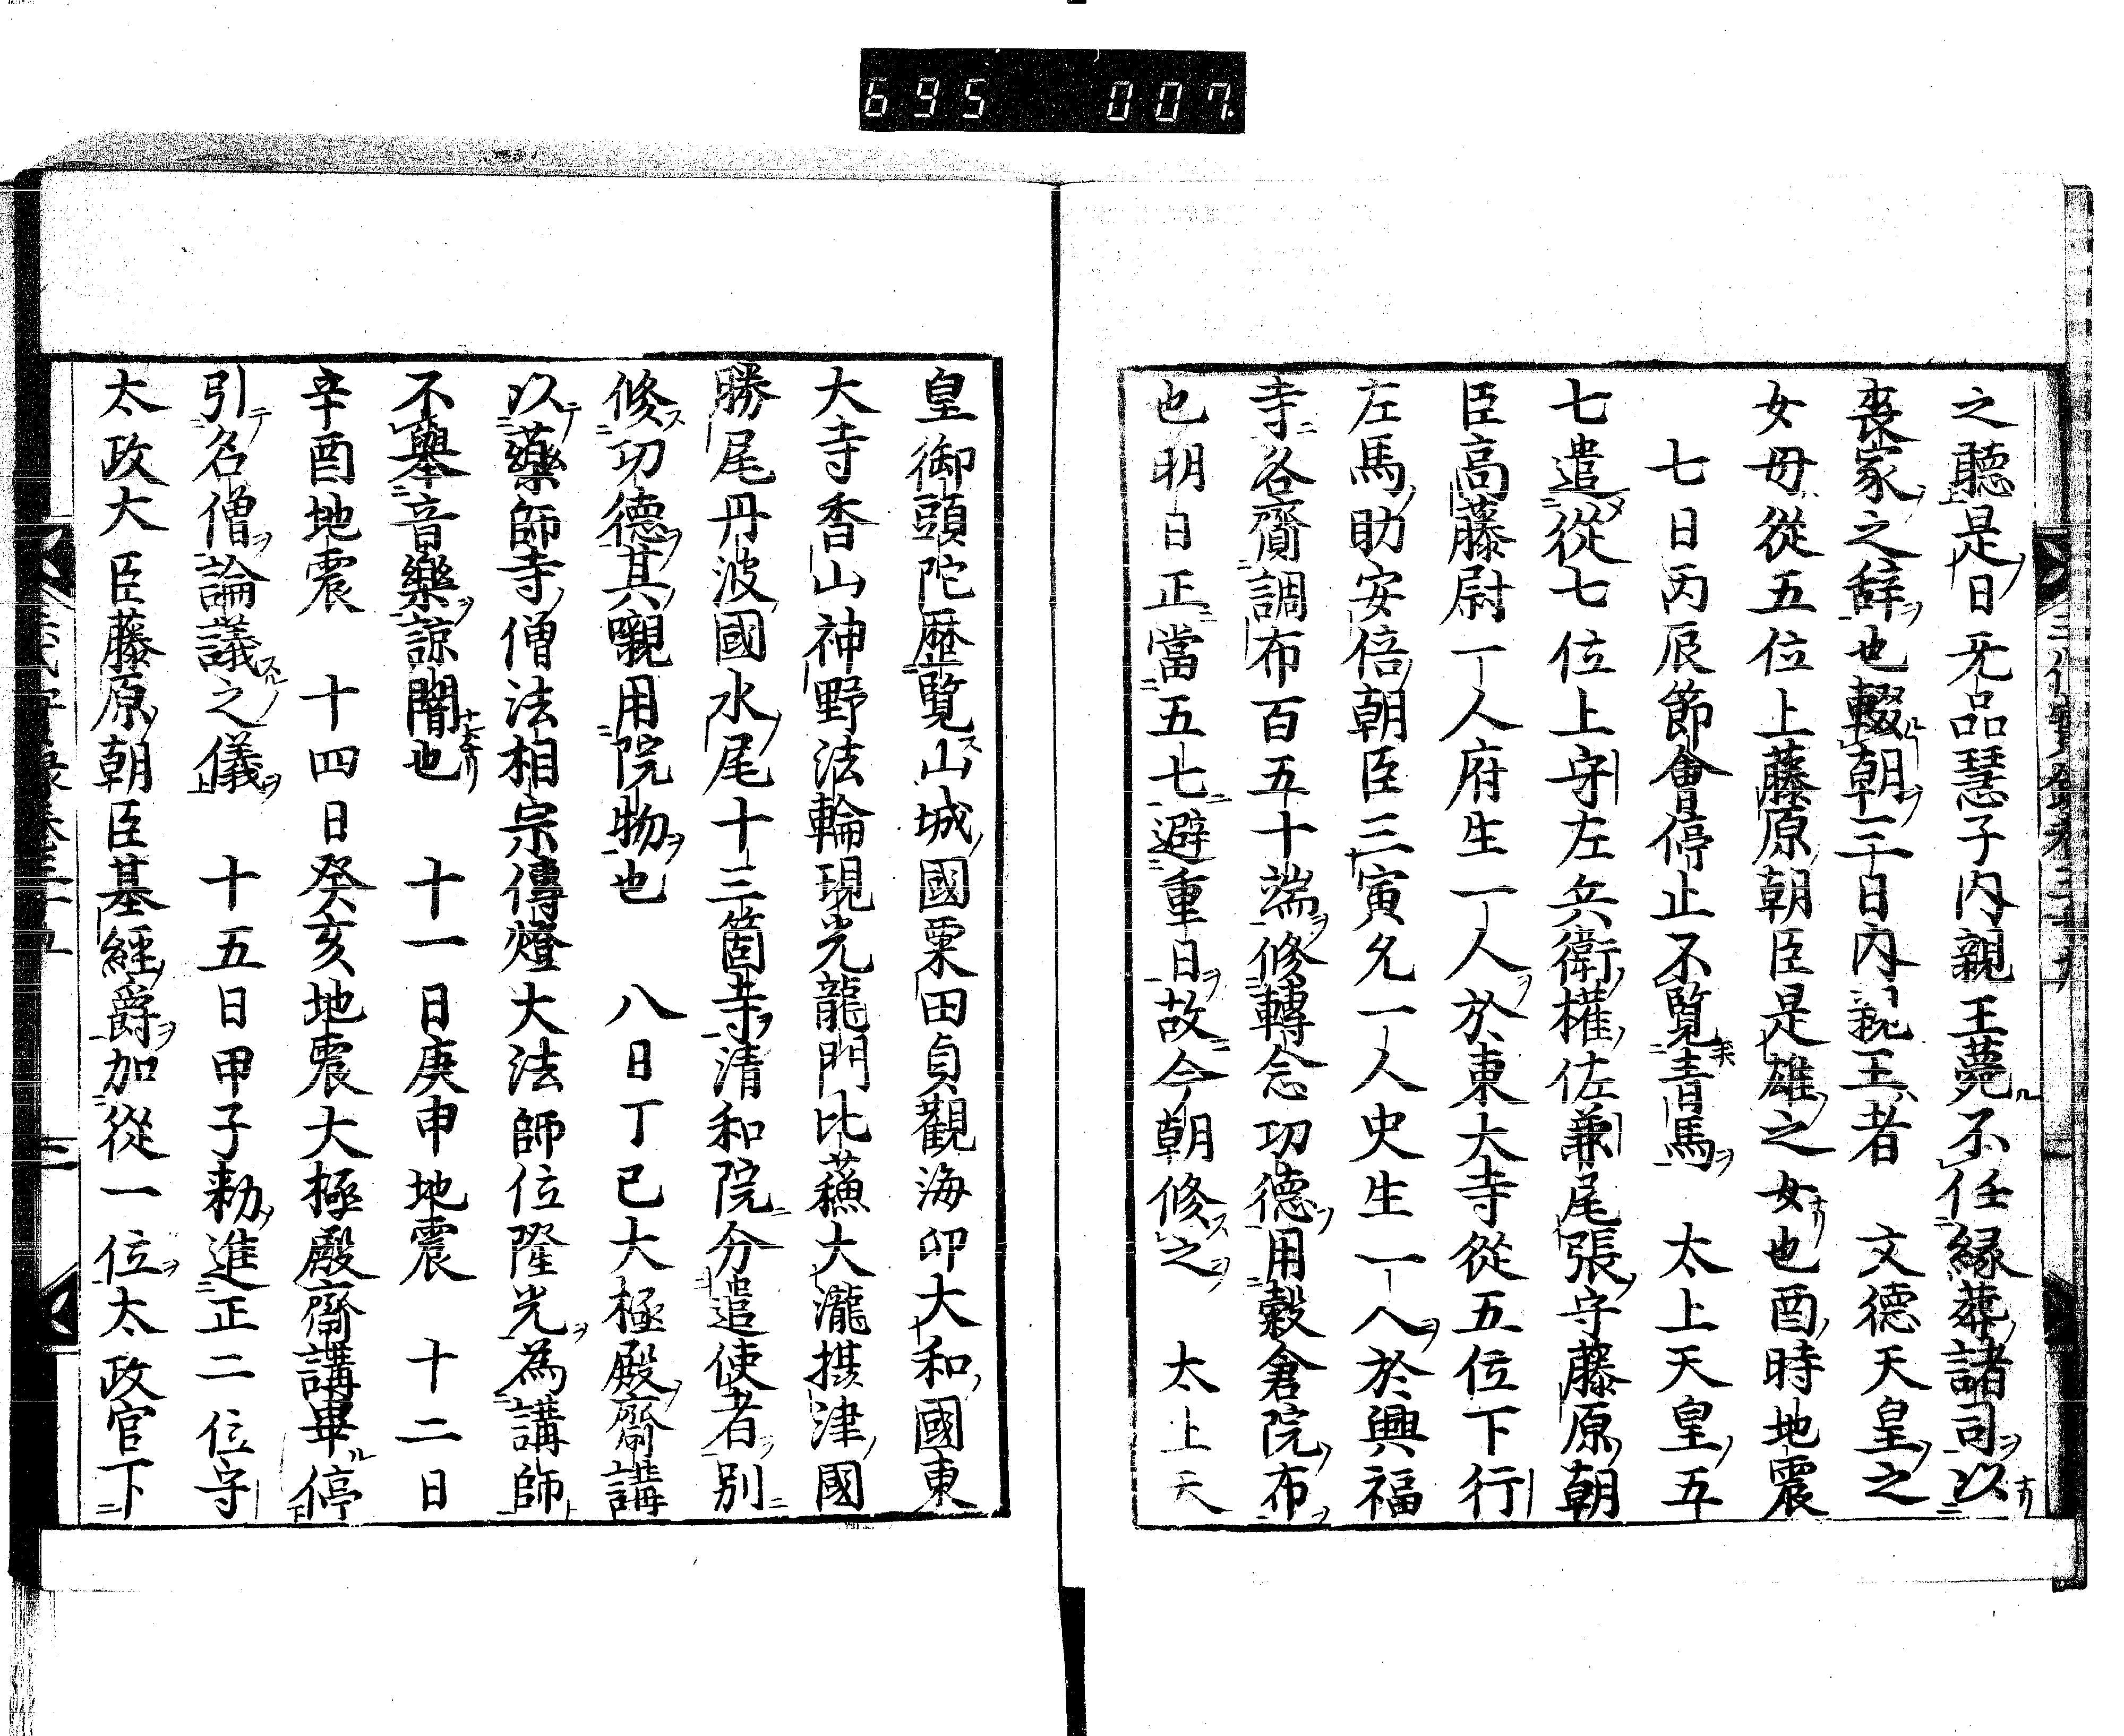 695 007
之聽是日无品慧子内親王薨不任縁葬諸司以
喪家之辞也輟朝三日内親王者 文德天皇之
女母從五位上藤原朝臣是雄之女也酉時地震
七日丙辰節會停止不覧青馬 太上天皇五
七遣從七位上守左兵衛權佐兼尾張守藤原朝
臣高藤尉一人府生一人於東大寺從五位下行
左馬助安倍朝臣三寅允一人史生一人於興福
寺各齎調布百五十端修轉念功德用穀倉院布
也明日正當五七避重日故今朝修之 太上天
皇御頭陀歴覧山城國粟田貞觀海印大和國東
大寺香山神野法輪現光龍門比蘓大瀧摂津國
勝尾丹波國水尾十三箇寺清和院分遣使者別
修功德其嚫用院物也 八日丁巳大極殿齋講
以藥師寺僧法相宗傳燈大法師位隆光為講師
不擧音樂諒闇也 十一日庚申地震 十二日
辛酉地震 十四日癸亥地震大極殿齋講畢停
引名僧論議之儀 十五日甲子勅進正二位守
太政大臣藤原朝臣基經爵加從一位太政官下